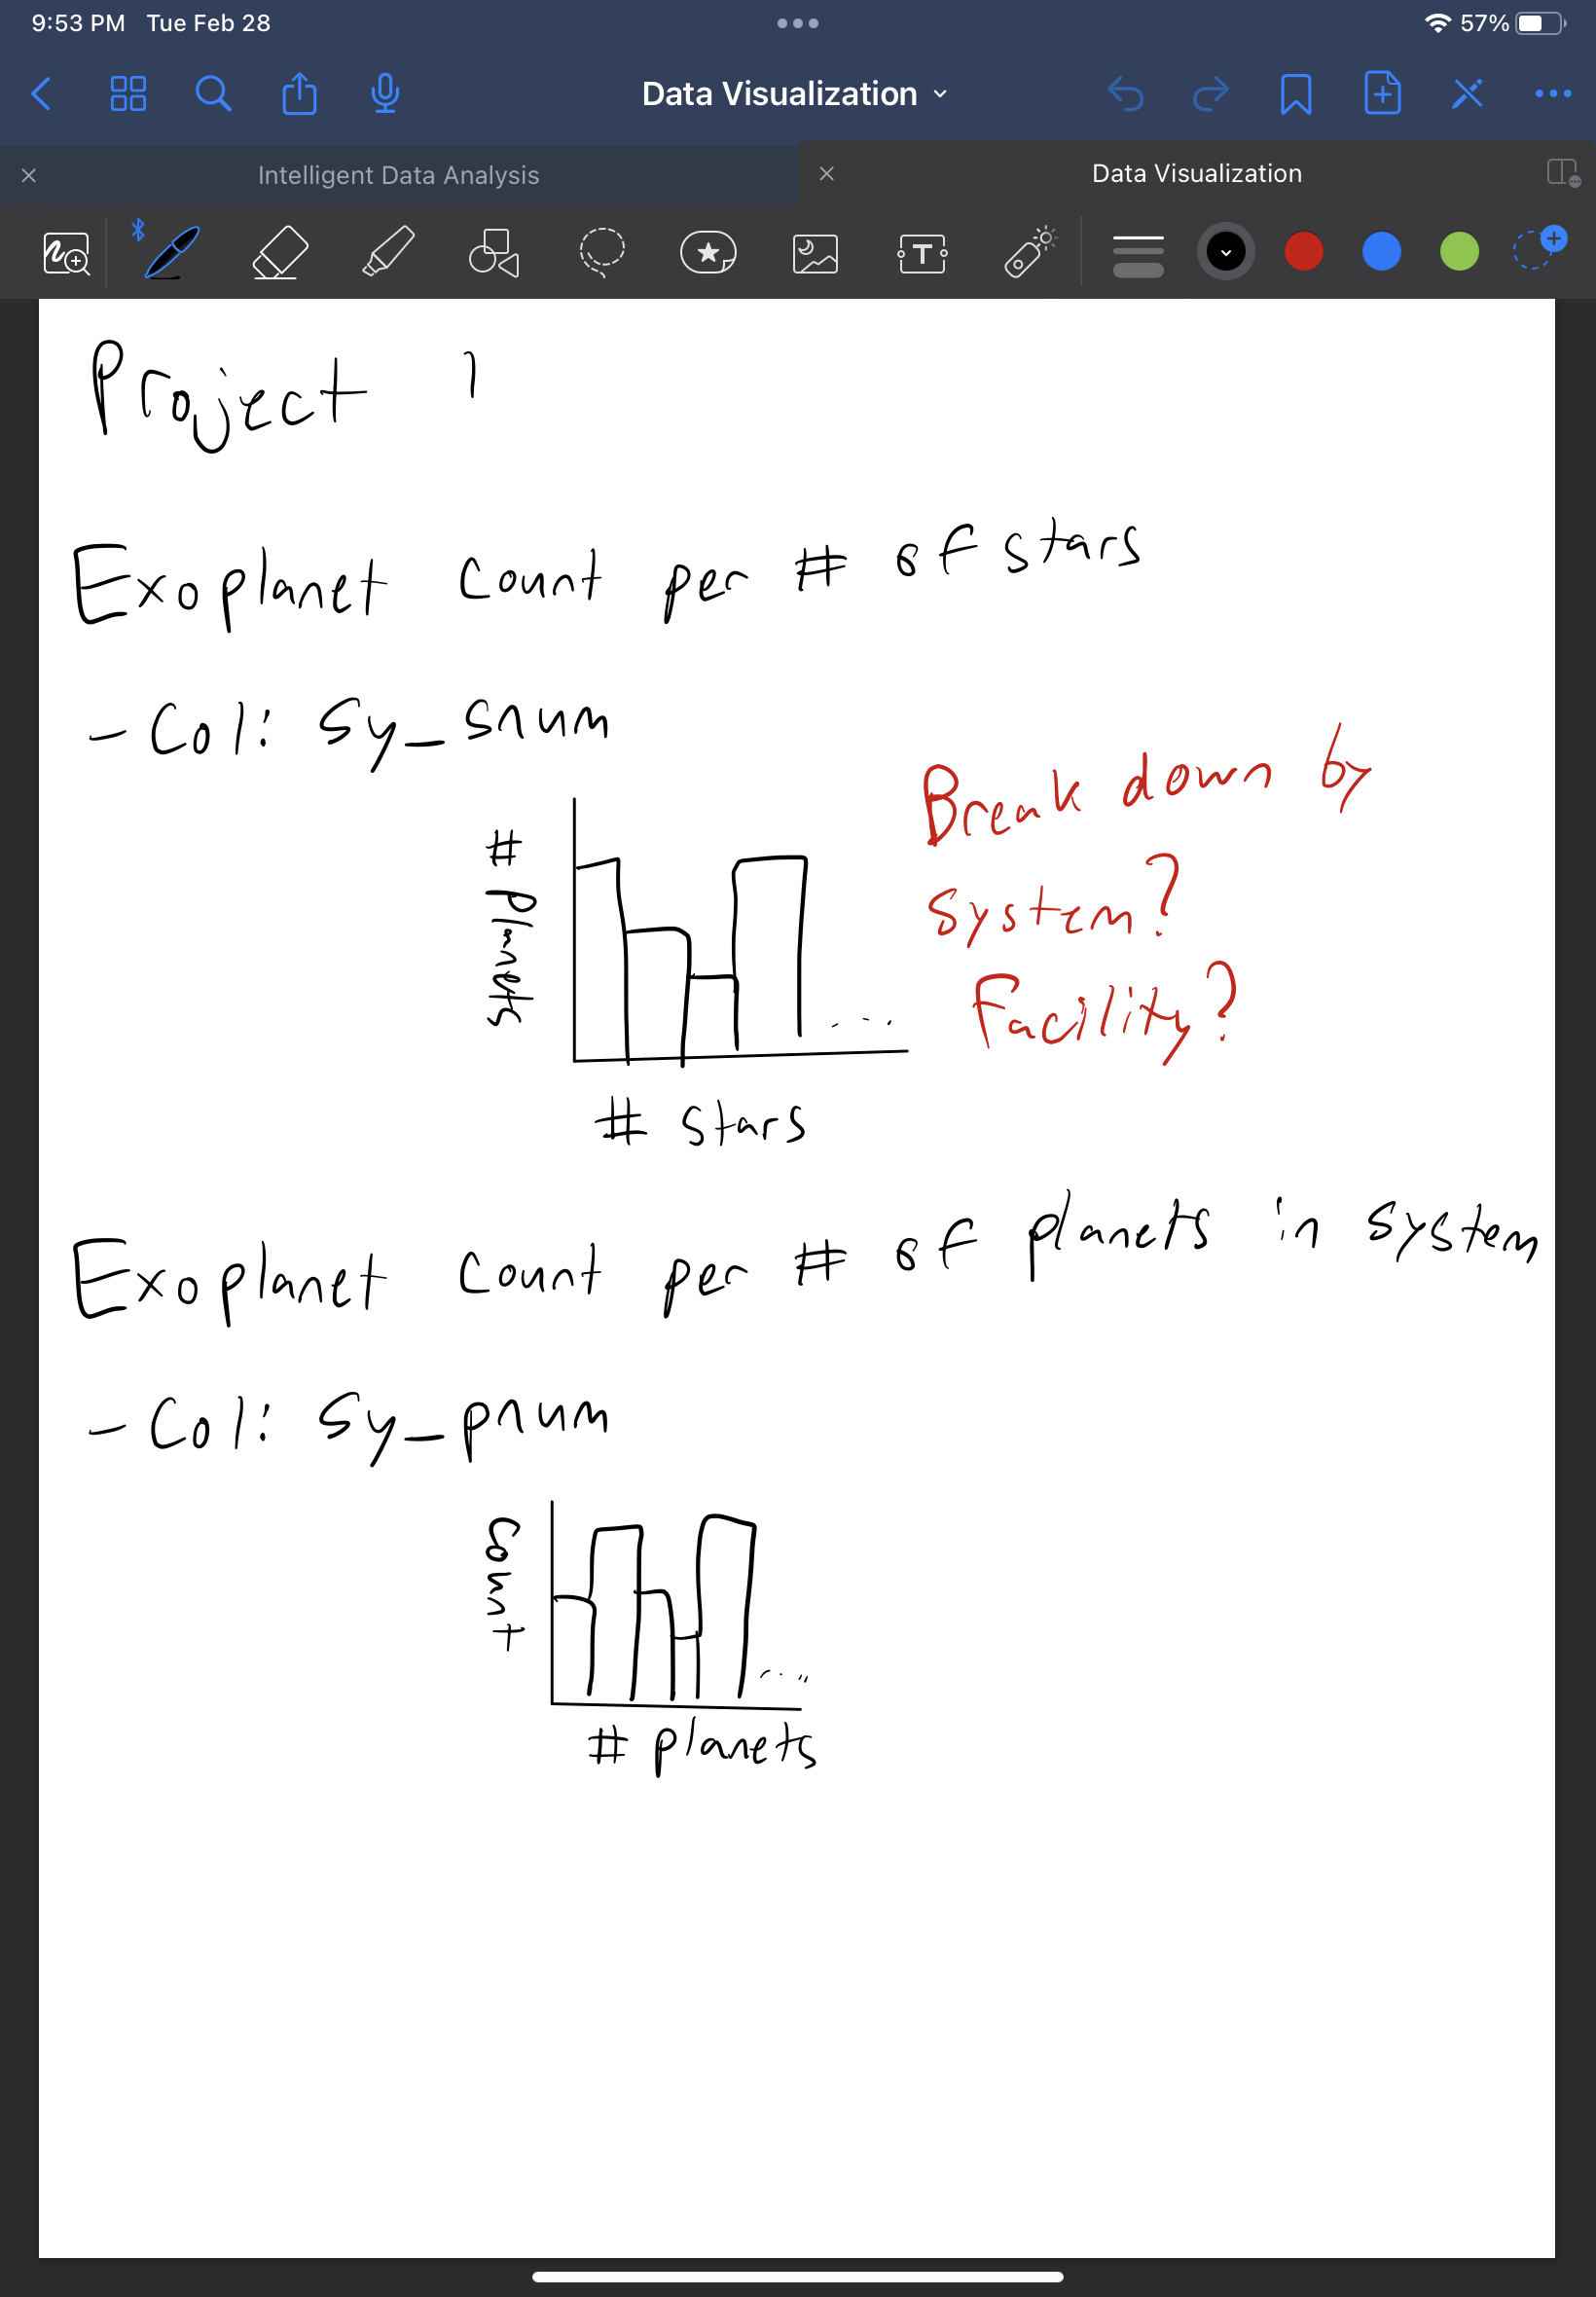 9:53 PM Tue Feb 28
57%
Data Visualization
Intelligent Data Analysis
Data Visualization
T
Project 1
Exoplanet count per # of stars
- Col: sy_snum
# Planets
# stars
Break down by
system?
Facility?
Exoplanet count per # of planets in system
- Col: sy_pnum
count
# planets